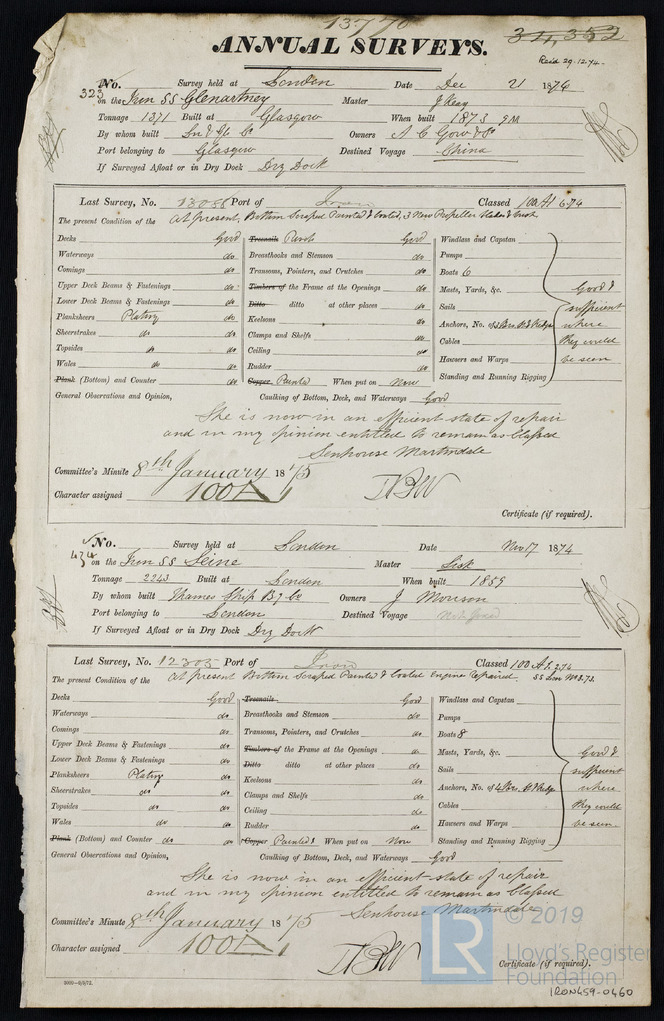 13770
ANNUAL SURVEYS.
34,352
Recd 29.12.74.
No. 323 Survey held at London Date Dec 21 1874
on the Iron SS Glenartney Master J Keay
Tonnage 1371 Built at Glasgow When built 1873 9M
By whom built Ln & Gls Co Owners A C Gow & Co
Port belonging to Glasgow Destined Voyage China
If Surveyed Afloat or in Dry Dock Dry Dock
Last Survey, No. 13086 Port of Iron Classed 100A1 6.74
The present Condition of the At present, Bottom Scraped Painted & Coated, 3 New Propeller Blades &
Decks Good Treenails Rivets Good Windlass and Capstan
Waterways do. Breasthooks and Stemson do. Pumps
Comings do. Transoms, Pointers, and Crutches do. Boats 6
Upper Deck Beams & Fastenings do. Timbers of the Frame at the Openings do. Masts, Yards, &c. Good &
Lower Deck Beams & Fastenings do. Ditto ditto at other places do. Sails sufficient
Planksheers Plating do. Keelsons do. Anchors, No. of where
Sheerstrakes do do. Clamps and Shelfs do. Cables they could
Topsides do do. Ceiling do. Hawsers and Warps be seen
Wales do do. Rudder do. Standing and Running Rigging
Plank (Bottom) and Counter do. Copper Painted When put on Now
General Observations and Opinion, Caulking of Bottom, Deck, and Waterways Good
She is now in an efficient state of repair
and in my opinion entitled to remain as Classed
Senhouse Martindale
Committee's Minute 8th January 1875
Character assigned 100A1
Certificate (if required).
No. 434 Survey held at London Date Nov 17 1874
on the Iron SS Seine Master Sisk
Tonnage 2243 Built at London When built 1859
By whom built Thames Ship Bg Co Owners J Morrison
Port belonging to London Destined Voyage Not fixed
If Surveyed Afloat or in Dry Dock Dry Dock
Last Survey, No. 12305 Port of Iron Classed 100A1. 2.74
SS Lon No 3.73.
The present Condition of the At present Bottom Scraped Painted & Coated Engine Repaired.
Decks Good Treenails Good Windlass and Capstan
Waterways do. Breasthooks and Stemson do. Pumps
Comings do Transoms, Pointers, and Crutches do. Boats 8
Upper Deck Beams & Fastenings do. Timbers of the Frame at the Openings do. Masts, Yards, &c. Good &
Lower Deck Beams & Fastenings do. Ditto ditto at other places do. Sails sufficient
Planksheers Plating do. Keelsons do. Anchors, No. of where
Sheerstrakes do do. Clamps and Shelfs do Cables they could
Topsides do do. Ceiling do Hawsers and Warps be seen
Wales do do Rudder do. Standing and Running Rigging
Plank (Bottom) and Counter do do Copper Painted When put on Now
General Observations and Opinion, Caulking of Bottom, Deck, and Waterways Good
She is now in an efficient state of repair
and in my opinion entitled to remain as Classed
Senhouse Martindale
Committee's Minute 8th January 1875
Character assigned 100A1
Certificate (if required).
LR
© 2019
Lloyd's Register
Foundation
IRON459-0460